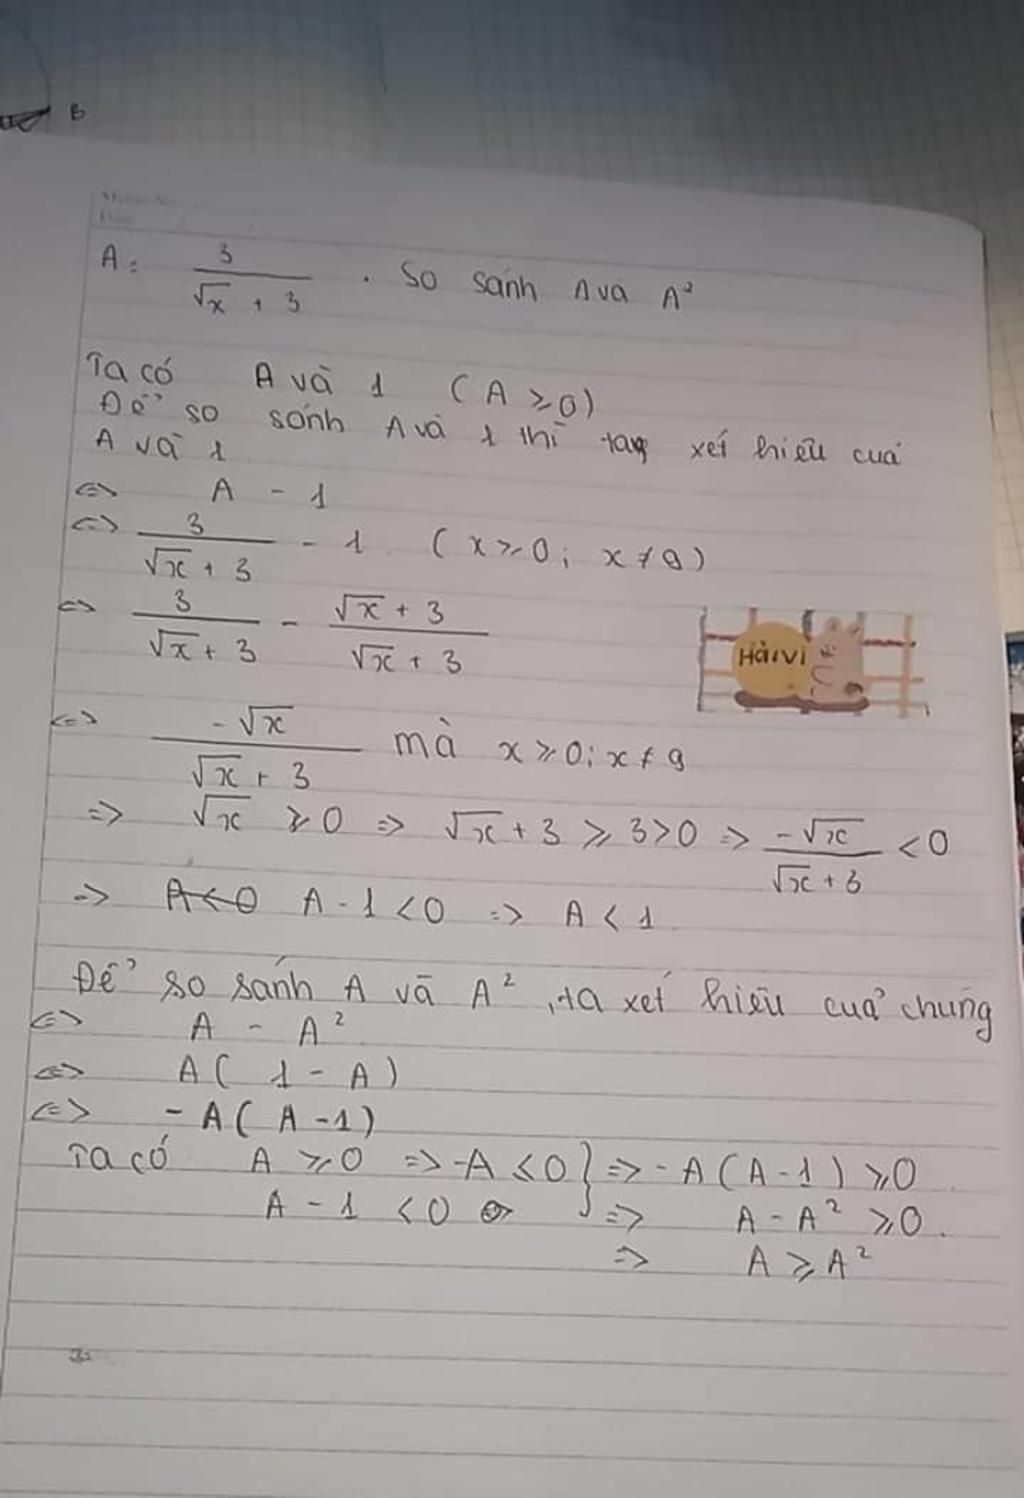 B
Memo No.
Date / /
A = 3/(√x + 3) . So sánh A và A²
Ta có A và 1 (A ⩾ 0)
Để so sánh A và 1 thì ta xét hiệu của
A và 1
<=> A - 1
<=> 3/(√x + 3) - 1 (x ⩾ 0; x ≠ 9)
<=> 3/(√x + 3) - (√x + 3)/(√x + 3)
Hải Vi
<=> -√x/(√x + 3) mà x ⩾ 0; x ≠ 9
=> √x ⩾ 0 => √x + 3 ⩾ 3 > 0 => -√x/(√x + 3) < 0
=> A < 0 A - 1 < 0 => A < 1
Để so sánh A và A², ta xét hiệu của chúng
<=> A - A²
<=> A( 1 - A)
<=> - A( A - 1)
Ta có A ⩾ 0 => -A ⩽ 0 } => - A( A - 1) ⩾ 0
A - 1 < 0 => A - A² ⩾ 0.
=> A ⩾ A²